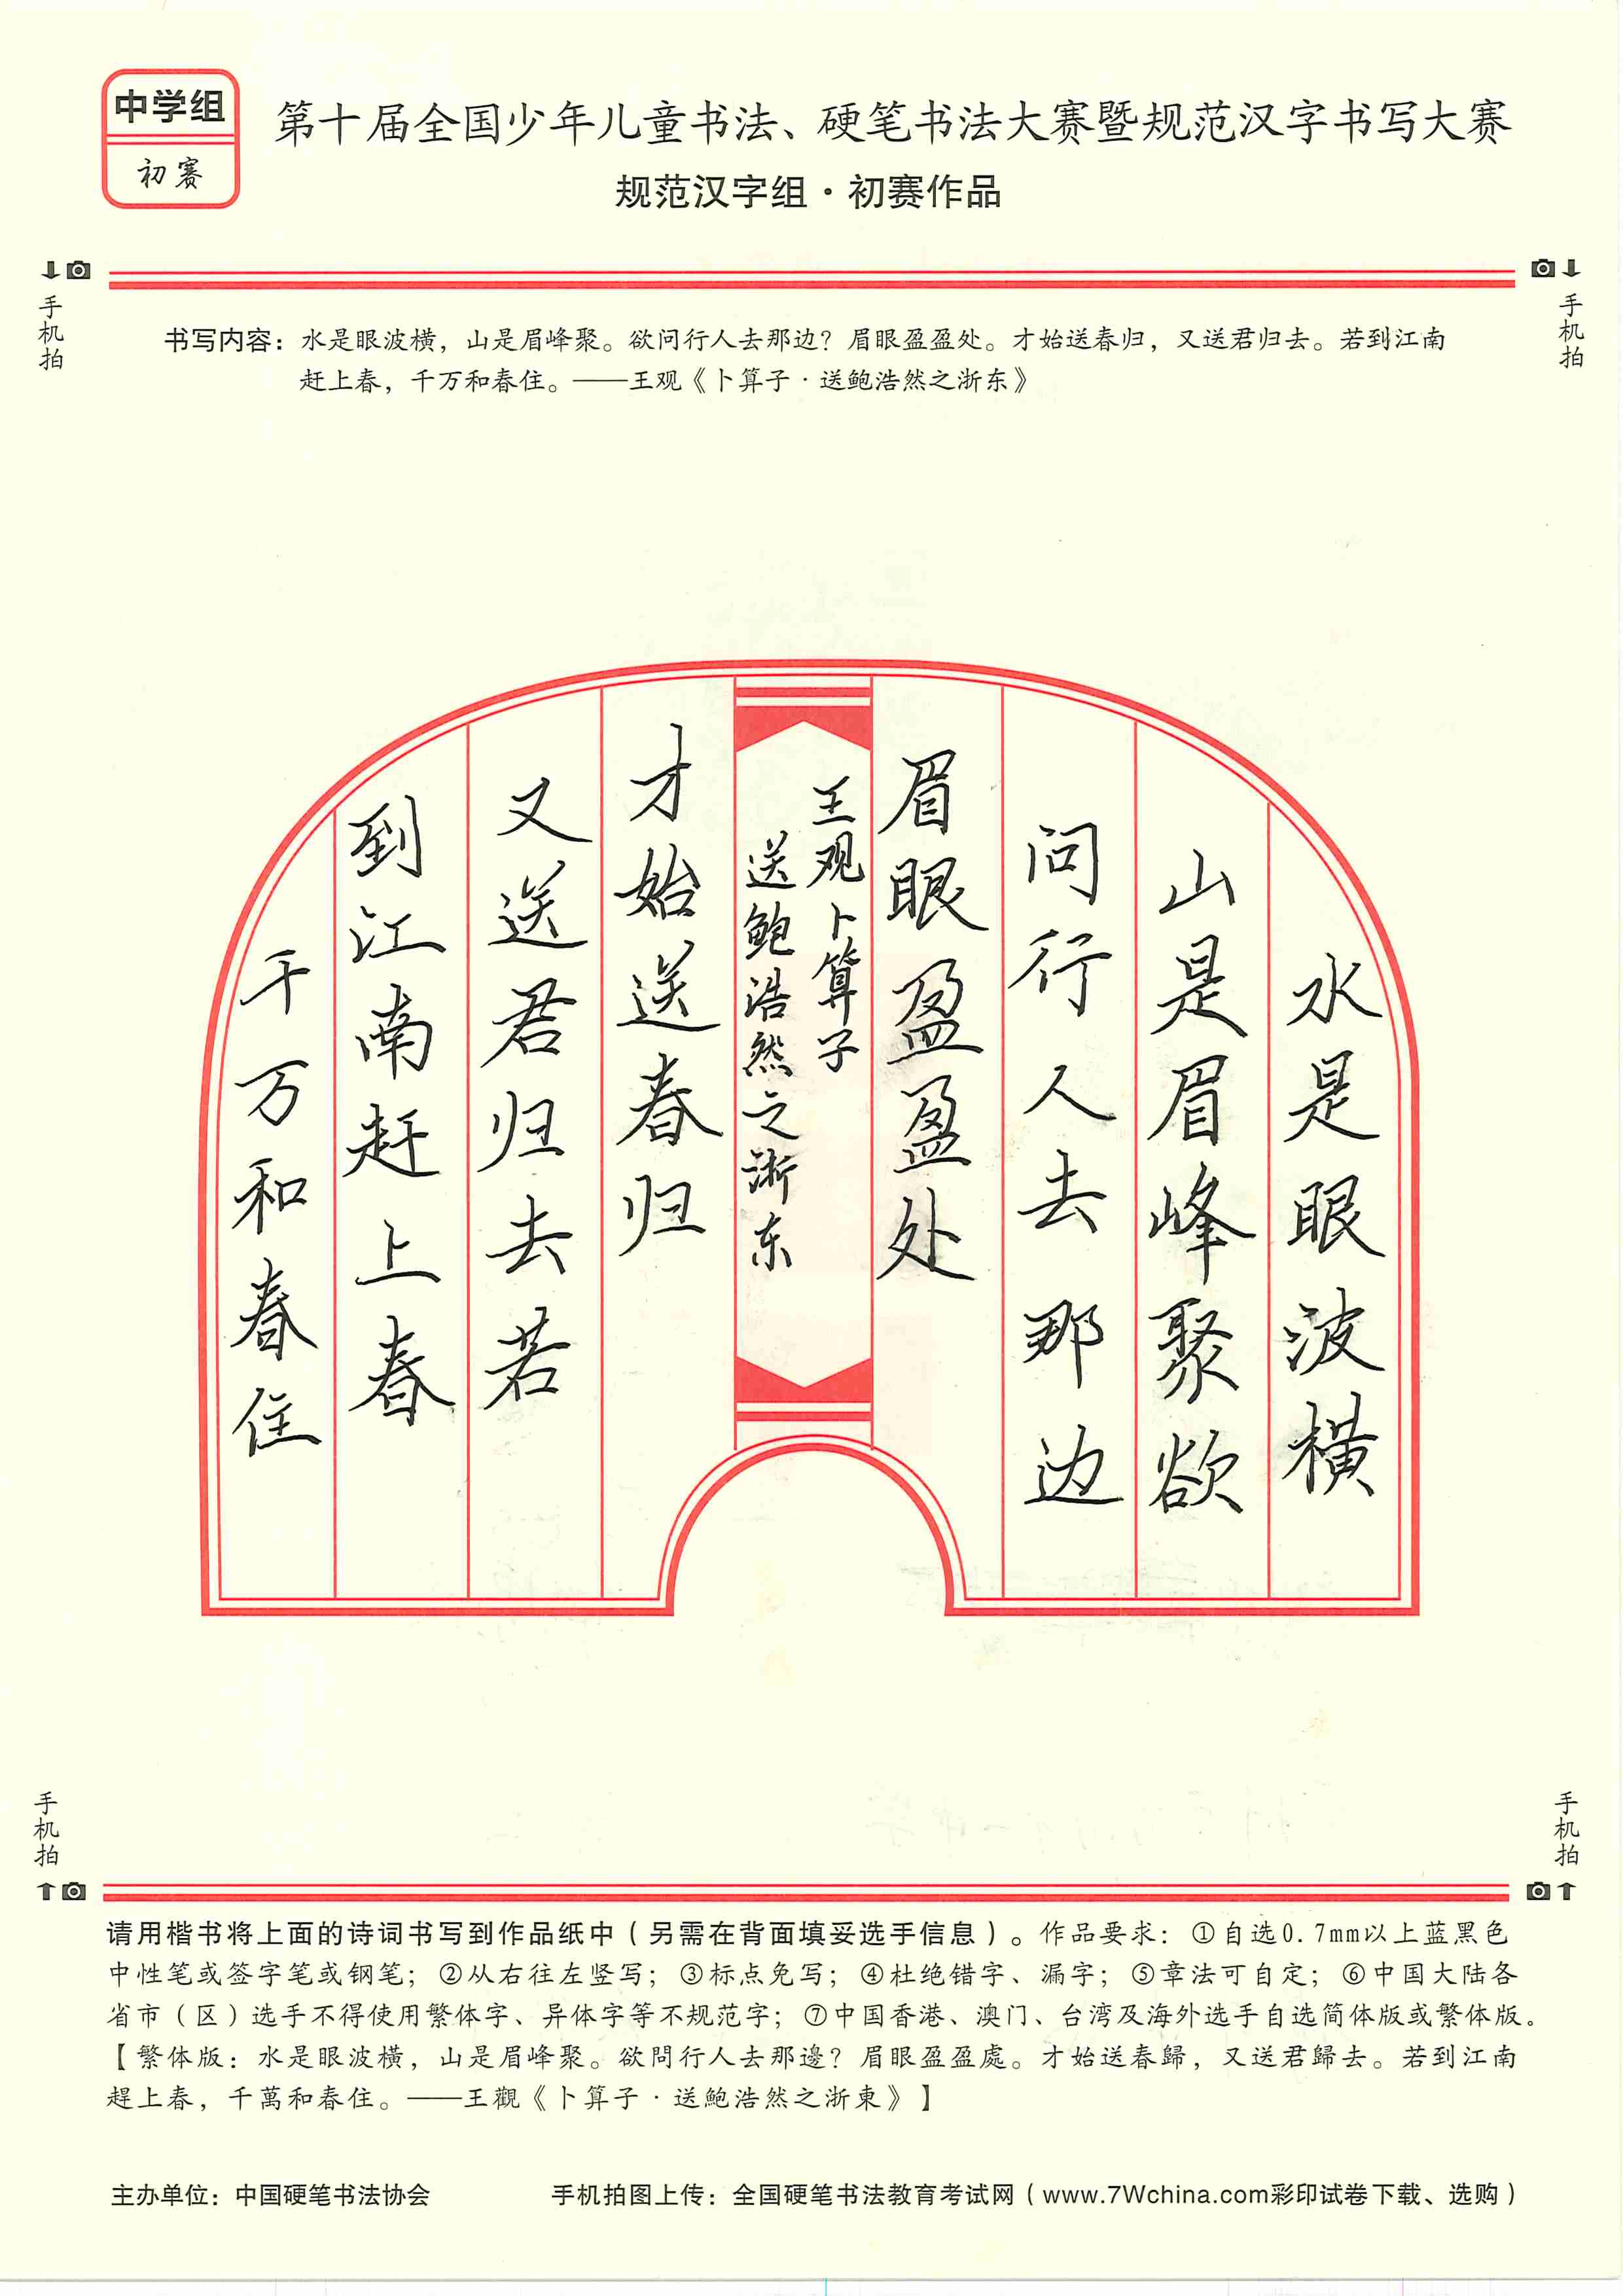 中学组
初赛
第十届全国少年儿童书法、硬笔书法大赛暨规范汉字书写大赛
规范汉字组·初赛作品
手机拍
手机拍
书写内容：水是眼波横，山是眉峰聚。欲问行人去那边？眉眼盈盈处。才始送春归，又送君归去。若到江南
赶上春，千万和春住。——王观《卜算子·送鲍浩然之浙东》
水是眼波横
山是眉峰聚欲
问行人去那边
眉眼盈盈处
王观卜算子
送鲍浩然之浙东
才始送春归
又送君归去若
到江南赶上春
千万和春住
手机拍
手机拍
请用楷书将上面的诗词书写到作品纸中（另需在背面填妥选手信息）。作品要求：①自选0.7mm以上蓝黑色
中性笔或签字笔或钢笔；②从右往左竖写；③标点免写；④杜绝错字、漏字；⑤章法可自定；⑥中国大陆各
省市（区）选手不得使用繁体字、异体字等不规范字；⑦中国香港、澳门、台湾及海外选手自选简体版或繁体版。
【繁体版：水是眼波橫，山是眉峰聚。欲問行人去那邊？眉眼盈盈處。才始送春歸，又送君歸去。若到江南
趕上春，千萬和春住。——王觀《卜算子·送鮑浩然之浙東》】
主办单位：中国硬笔书法协会
手机拍图上传：全国硬笔书法教育考试网（www.7Wchina.com彩印试卷下载、选购）